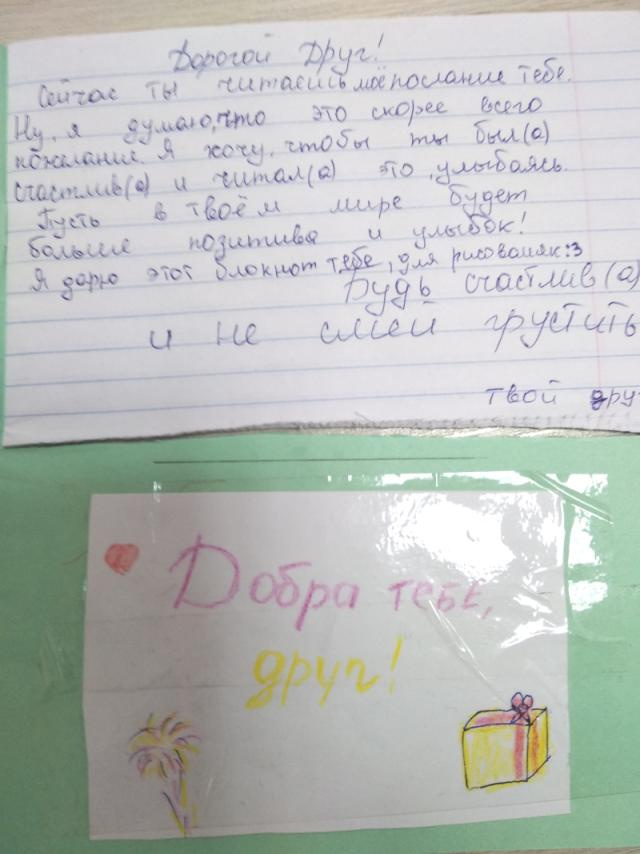 Дорогой Друг!
Сейчас ты читаешь моё послание тебе.
Ну, я думаю, что это скорее всего
пожелание. Я хочу, чтобы ты был(а)
счастлив(а) и читал(а) это, улыбаясь.
Пусть в твоём мире будет
больше позитива и улыбок!
Я дарю этот блокнот тебе, для рисовашек :3
Будь счастлив(а)
и не смей грустить
твой дру
Добра тебе,
друг!